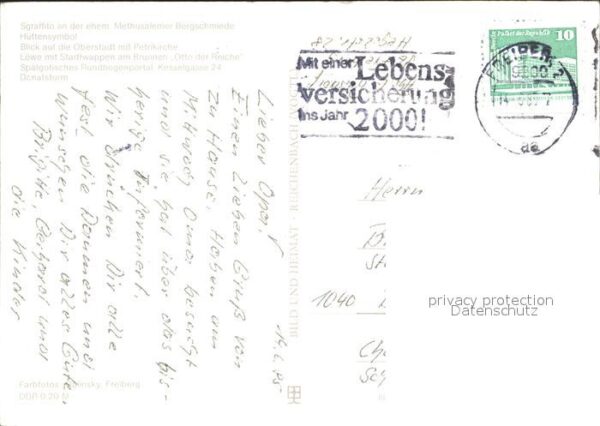 Sgraffito an der ehem. Methusalemer Bergschmiede
Hüttensymbol
Blick auf die Oberstadt mit Petrikirche
Löwe mit Stadtwappen am Brunnen „Otto der Reiche“
Spätgotisches Rundbogenportal, Kesselgasse 24
Donatsturm
Mit einer
Lebens-
versicherung
ins Jahr 2000!
10
FREIBERG 2
14.6.85
Lieber Opa!
Einen lieben Gruß von
zu Hause. Haben am
Mittwoch Oma besucht
und sie hat über das bis-
herige informiert.
Wir drücken Dir alle
fest die Daumen und
wünschen Dir alles Gute.
Brigitte, Gerhard und
die Kinder
BILD UND HEIMAT REICHENBACH
Herrn
1040
privacy protection
Datenschutz
Farbfotos: Freiberg
DDR 0,20 M